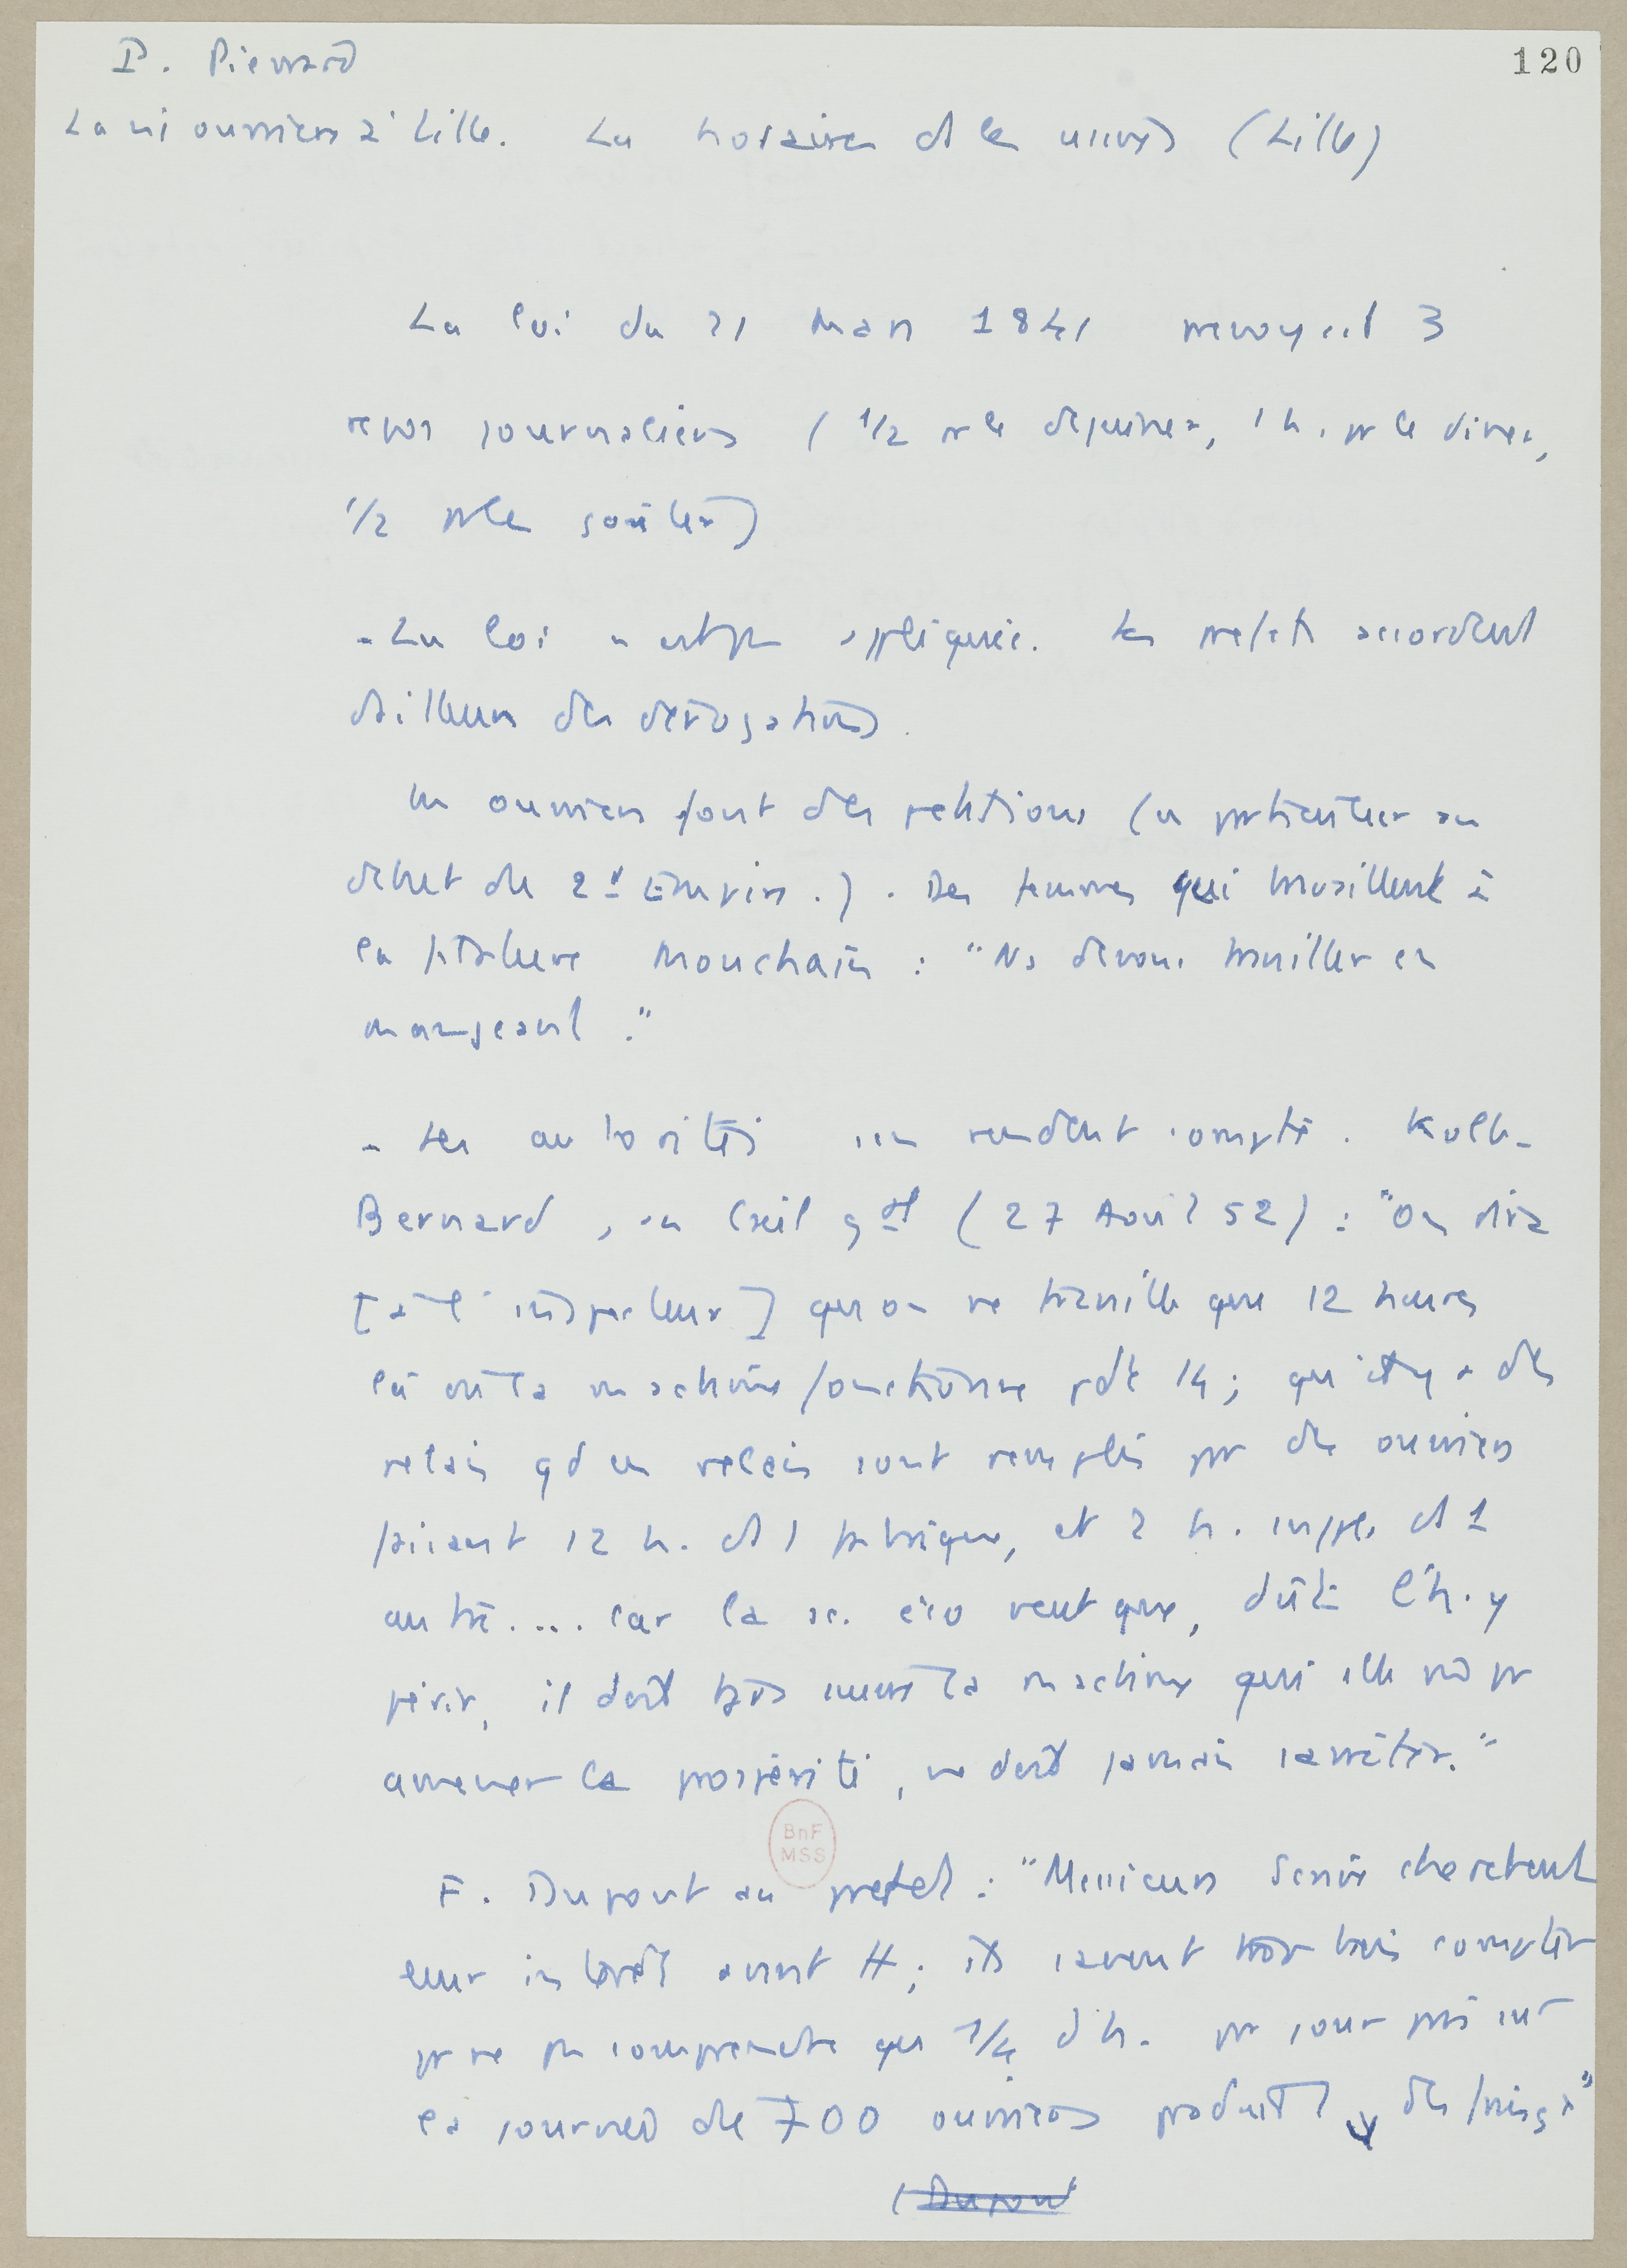 P. Pierrard
120
La vie ouvrière à Lille. Les horaires ds les usines (Lille)
La loi du 21 Mars 1841 prévoyait 3
repos journaliers (1/2 pr le déjeuner, 1 h. pr le dîner,
1/2 pr le goûter)
- La loi n'est pas appliquée. Les préfets accordent
d'ailleurs des dérogations.
Les ouvriers font des pétitions (en particulier au
début du 2d Empire.). Des femmes qui travaillent à
la filature Mouchain : "Ns devons travailler en
mangeant."
- Les autorités s'en rendent compte. Kolb-
Bernard, au Cseil gal (27 Aout 52) : "On dira
[à l'inspecteur] qu'on ne travaille que 12 heures
là où la machine fonctionne pdt 14; qu'il y a des
relais qd ces relais sont remplis par des ouvriers
faisant 12 h. ds 1 fabrique, et 2 h. suppl. ds 1
autre.... car la sc. éco veut que, dût l'h. y
périr, il doit suivre la machine qui elle pr
amener la prospérité, ne doit jamais s'arrêter."
BnF
MSS
F. Dupont au préfet : "Messieurs cherchent
leur intérêt avant tt; ils savent trop bien compter
pr ne pas comprendre qu' 1/4 d'h. par jour pris sur
la journée de 700 ouvriers produit
(Dupont